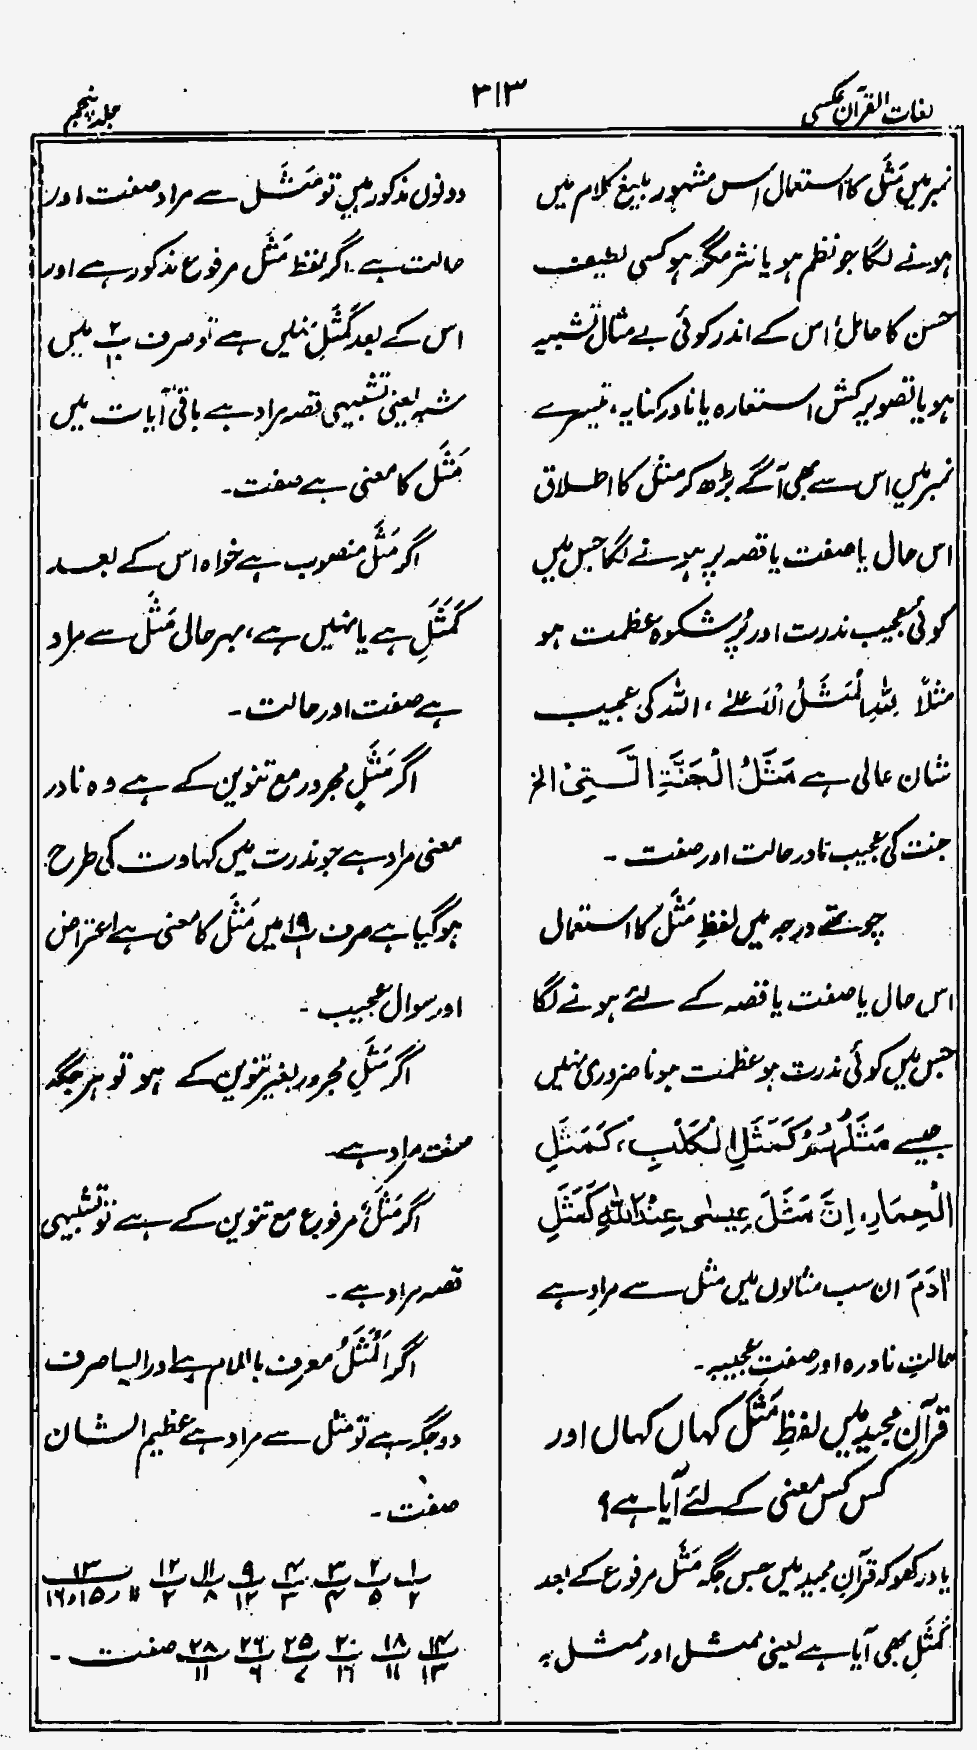 لغات القرآن عکسی
۳۱۳
جلد پنجم
نمبر میں مَثَل کا استعمال اس مشہور بلیغ کلام میں
ہونے لگا جو نظم ہو یا نثر مگر ہو کسی لطیف
حسن کا حامل، اس کے اندر کوئی بے مثال تشبیہ
ہو یا تصویر کش استعارہ یا نادر کنایہ، تیسرے
نمبر میں اس سے بھی آگے بڑھ کر مثل کا اطلاق
اس حال یا صفت یا قصہ پر ہونے لگا جس میں
کوئی عجیب ندرت اور پُر شکوہ عظمت ہو
مثلاً لِلّٰہِ الْمَثَلُ الْاَعْلٰے، اللہ کی عجیب
شان عالی ہے مَثَلُ الْجَنَّۃِ الَّتِیْ الخ
جنت کی عجیب نادر حالت اور صفت ۔
چوتھے درجہ میں لفظِ مَثَل کا استعمال
اس حال یا صفت یا قصہ کے لئے ہونے لگا
جس میں کوئی ندرت ہو عظمت ہونا ضروری نہیں
جیسے مَثَلُہُمْ کَمَثَلِ الْکَلْبِ، کَمَثَلِ
الْحِمَارِ، اِنَّ مَثَلَ عِیسٰی عِنْدَ اللّٰہِ کَمَثَلِ
اٰدَمَ ان سب مثالوں میں مثل سے مراد ہے
حالتِ نادرہ اور صفت عجیبہ ۔
قرآن مجید میں لفظِ مَثَل کہاں کہاں اور
کس کس معنی کے لئے آیا ہے؟
یاد رکھو کہ قرآن مجید میں جس جگہ مَثَل مرفوع کے بعد
کَمَثَلِ بھی آیا ہے یعنی ممثل اور ممثل بہ
دونوں مذکور ہیں تو مَثَل سے مراد صفت اور
حالت ہے ۔ اگر لفظ مَثَل مرفوع مذکور ہے اور
اس کے بعد کَمَثَلِ نہیں ہے تو صرف پ۲/۱۰ میں
شبہ یعنی تشبیہی قصہ مراد ہے باقی آیات میں
مَثَل کا معنی ہے صفت ۔
اگر مَثَلَ منصوب ہے خواہ اس کے بعد
کَمَثَلِ ہے یا نہیں ہے، بہر حال مَثَل سے مراد
ہے صفت اور حالت ۔
اگر مَثَلٍ مجرور مع تنوین کے ہے وہ نادر
معنی مراد ہے جو ندرت میں کہاوت کی طرح
ہو گیا ہے صرف پ۱۹/۱ میں مَثَل کا معنی ہے اعتراض
اور سوال عجیب ۔
اگر مَثَلِ مجرور بغیر تنوین کے ہو تو ہر جگہ
صفت مراد ہے۔
اگر مَثَلٌ مرفوع مع تنوین کے ہے تو تشبیہی
قصہ مراد ہے ۔
اگر اَلْمَثَلُ معرف باللام ہے اور ایسا صرف
دو جگہ ہے تو مثل سے مراد ہے عظیم الشان
صفت ۔
۱/۲ ۲/۵ ۳/۴ ۴/۳ ۹/۱۲ ۱۱/۸ ۱۲/۲ ۱۳/۱۱ و ۱۵ و ۱۶
۱۴/۱۳ ۱۸/۱۱ ۲۰/۱۶ ۲۵/۷ ۲۶/۶ ۲۸/۱۱ صفت ۔